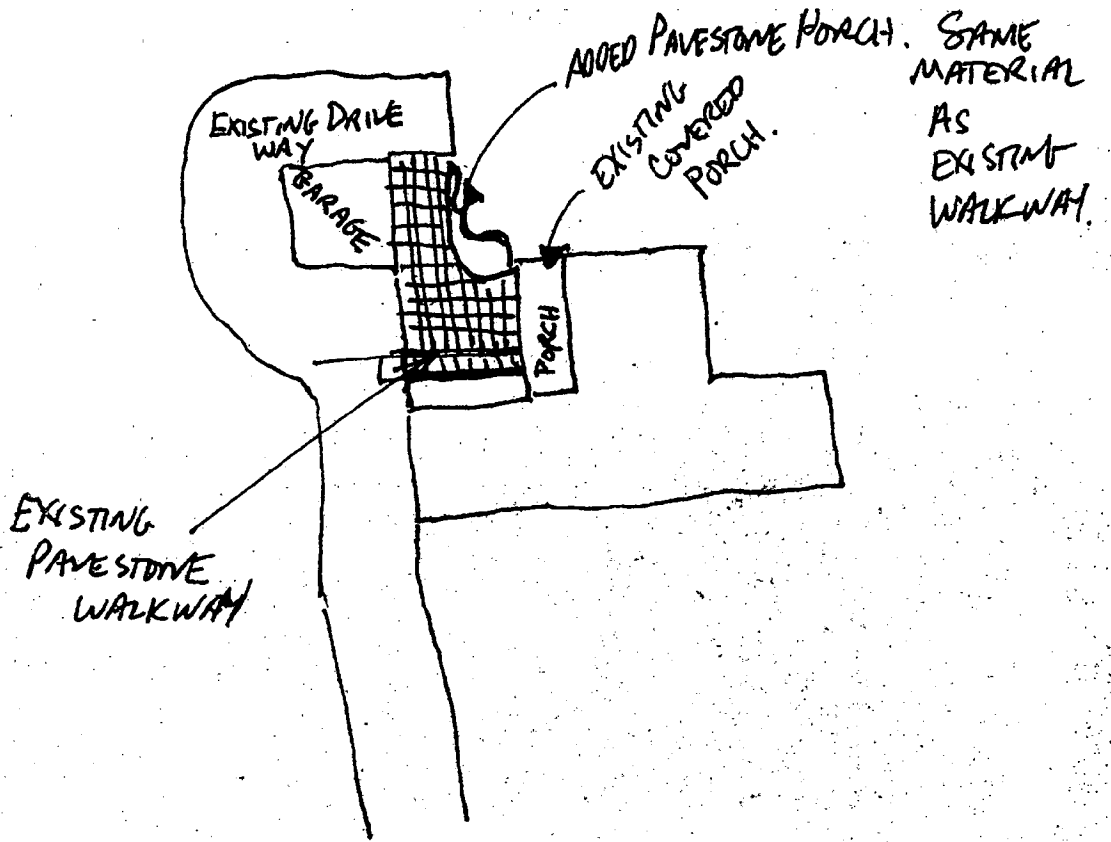 ADDED PAVESTONE PORCH. SAME
MATERIAL
AS
EXISTING
WALKWAY.
EXISTING
COVERED
PORCH.
EXISTING DRIVE
WAY
GARAGE
PORCH
EXISTING
PAVESTONE
WALKWAY